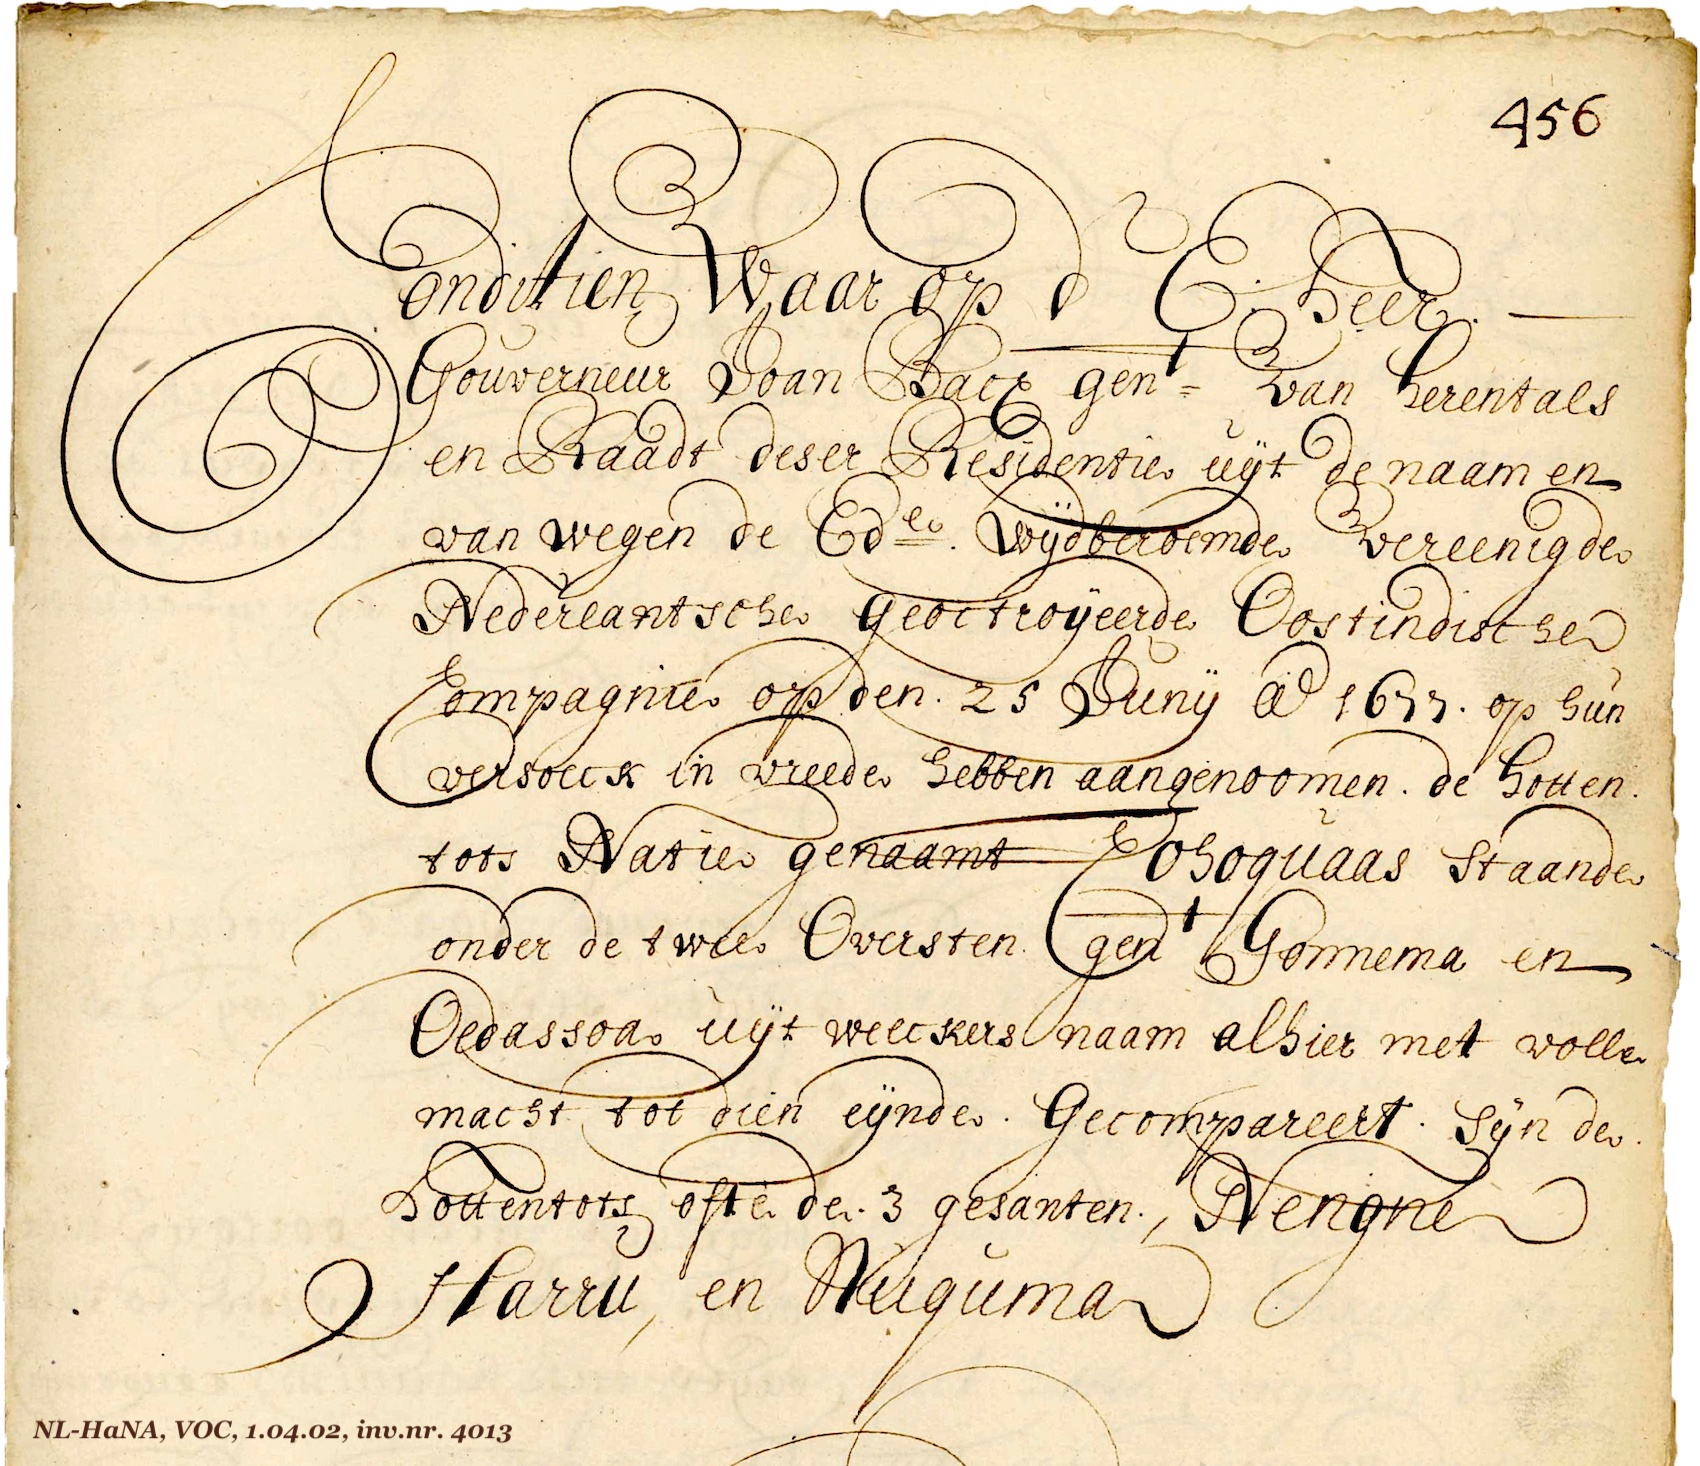 456
Conditien Waar op d' E: heer.
Gouverneur Joan Bacx gen:t van herentals
en Raadt deser Residentie uÿt de naam en
van wegen de Ed:le. Wÿdberoemde Vereenigde
Nederlantsche geoctroÿeerde Oostindische
Compagnie op den. 25 Junÿ A:o 1677. op hun
versoeck in vreede hebben aangenoomen. de hotten.
tots Natie genaamt Cohoquaas Staande
onder de twee Oversten gen:t Gonnema en
Oedassoa uÿt weeckers naam alhier met volle
macht tot dien eÿnde. Gecompareert. Sÿn de.
hottentots ofte de. 3 gesanten., Nengne
Harru, en Nuguma
NL-HaNA, VOC, 1.04.02, inv.nr. 4013